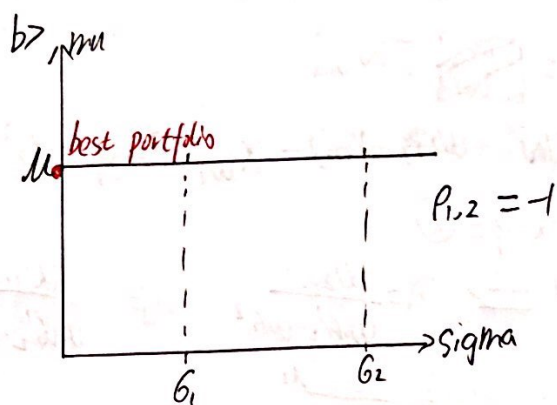 b>
mu
best portfolio
μ
ρ₁,₂ = -1
sigma
σ₁
σ₂